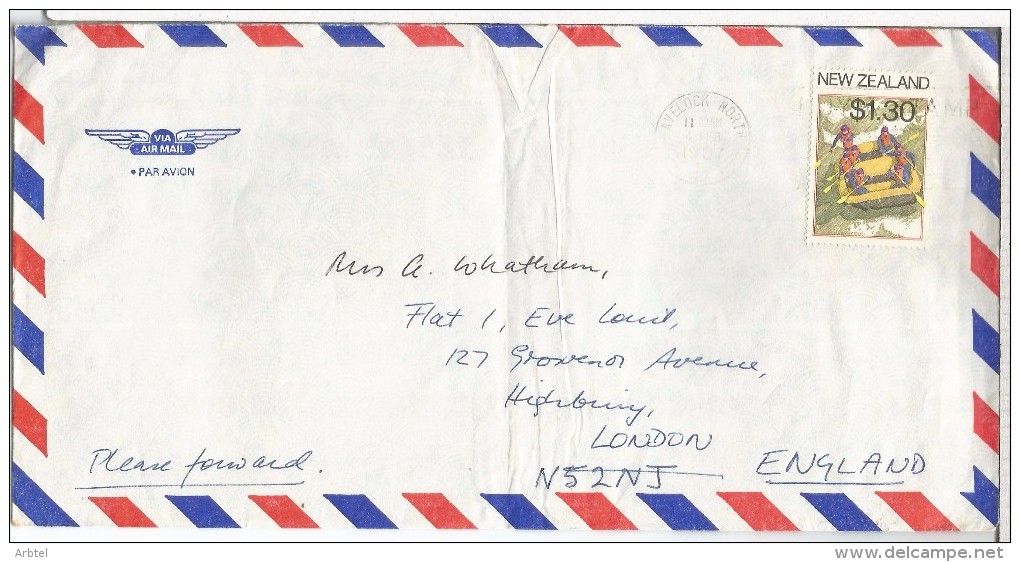 NEW ZEALAND
$1.30
AVELOCK NORTH
11
1987
VIA
AIR MAIL
• PAR AVION
Mrs A. Whatham,
Flat 1, Eve Court,
127 Grosvenor Avenue,
Highbury,
LONDON
N52NJ ENGLAND
Please forward.
Arbtel
www.delcampe.net